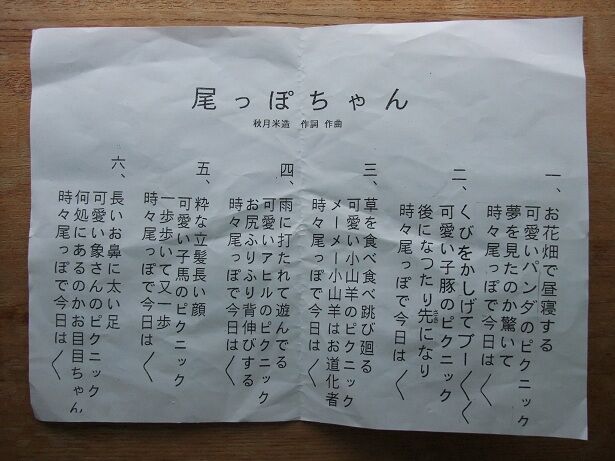 尾っぽちゃん
秋月米造 作詞 作曲
一、お花畑で昼寝する
可愛いパンダのピクニック
夢を見たのか驚いて
時々尾っぽで今日は〱
二、くびをかしげてブー〱〱
可愛い子豚のピクニック
後になつたり先になり
さき
時々尾っぽで今日は〱
三、草を食べ食べ跳び廻る
可愛い小山羊のピクニック
メーメー小山羊はお道化者
時々尾っぽで今日は〱
四、雨に打たれて遊んでる
可愛いアヒルのピクニック
お尻ふりふり背伸びする
時々尾っぽで今日は〱
五、粋な立髪長い顔
可愛い子馬のピクニック
一歩歩いて又一歩
時々尾っぽで今日は〱
六、長いお鼻に太い足
可愛い象さんのピクニック
何処にあるのかお目目ちゃん
時々尾っぽで今日は〱